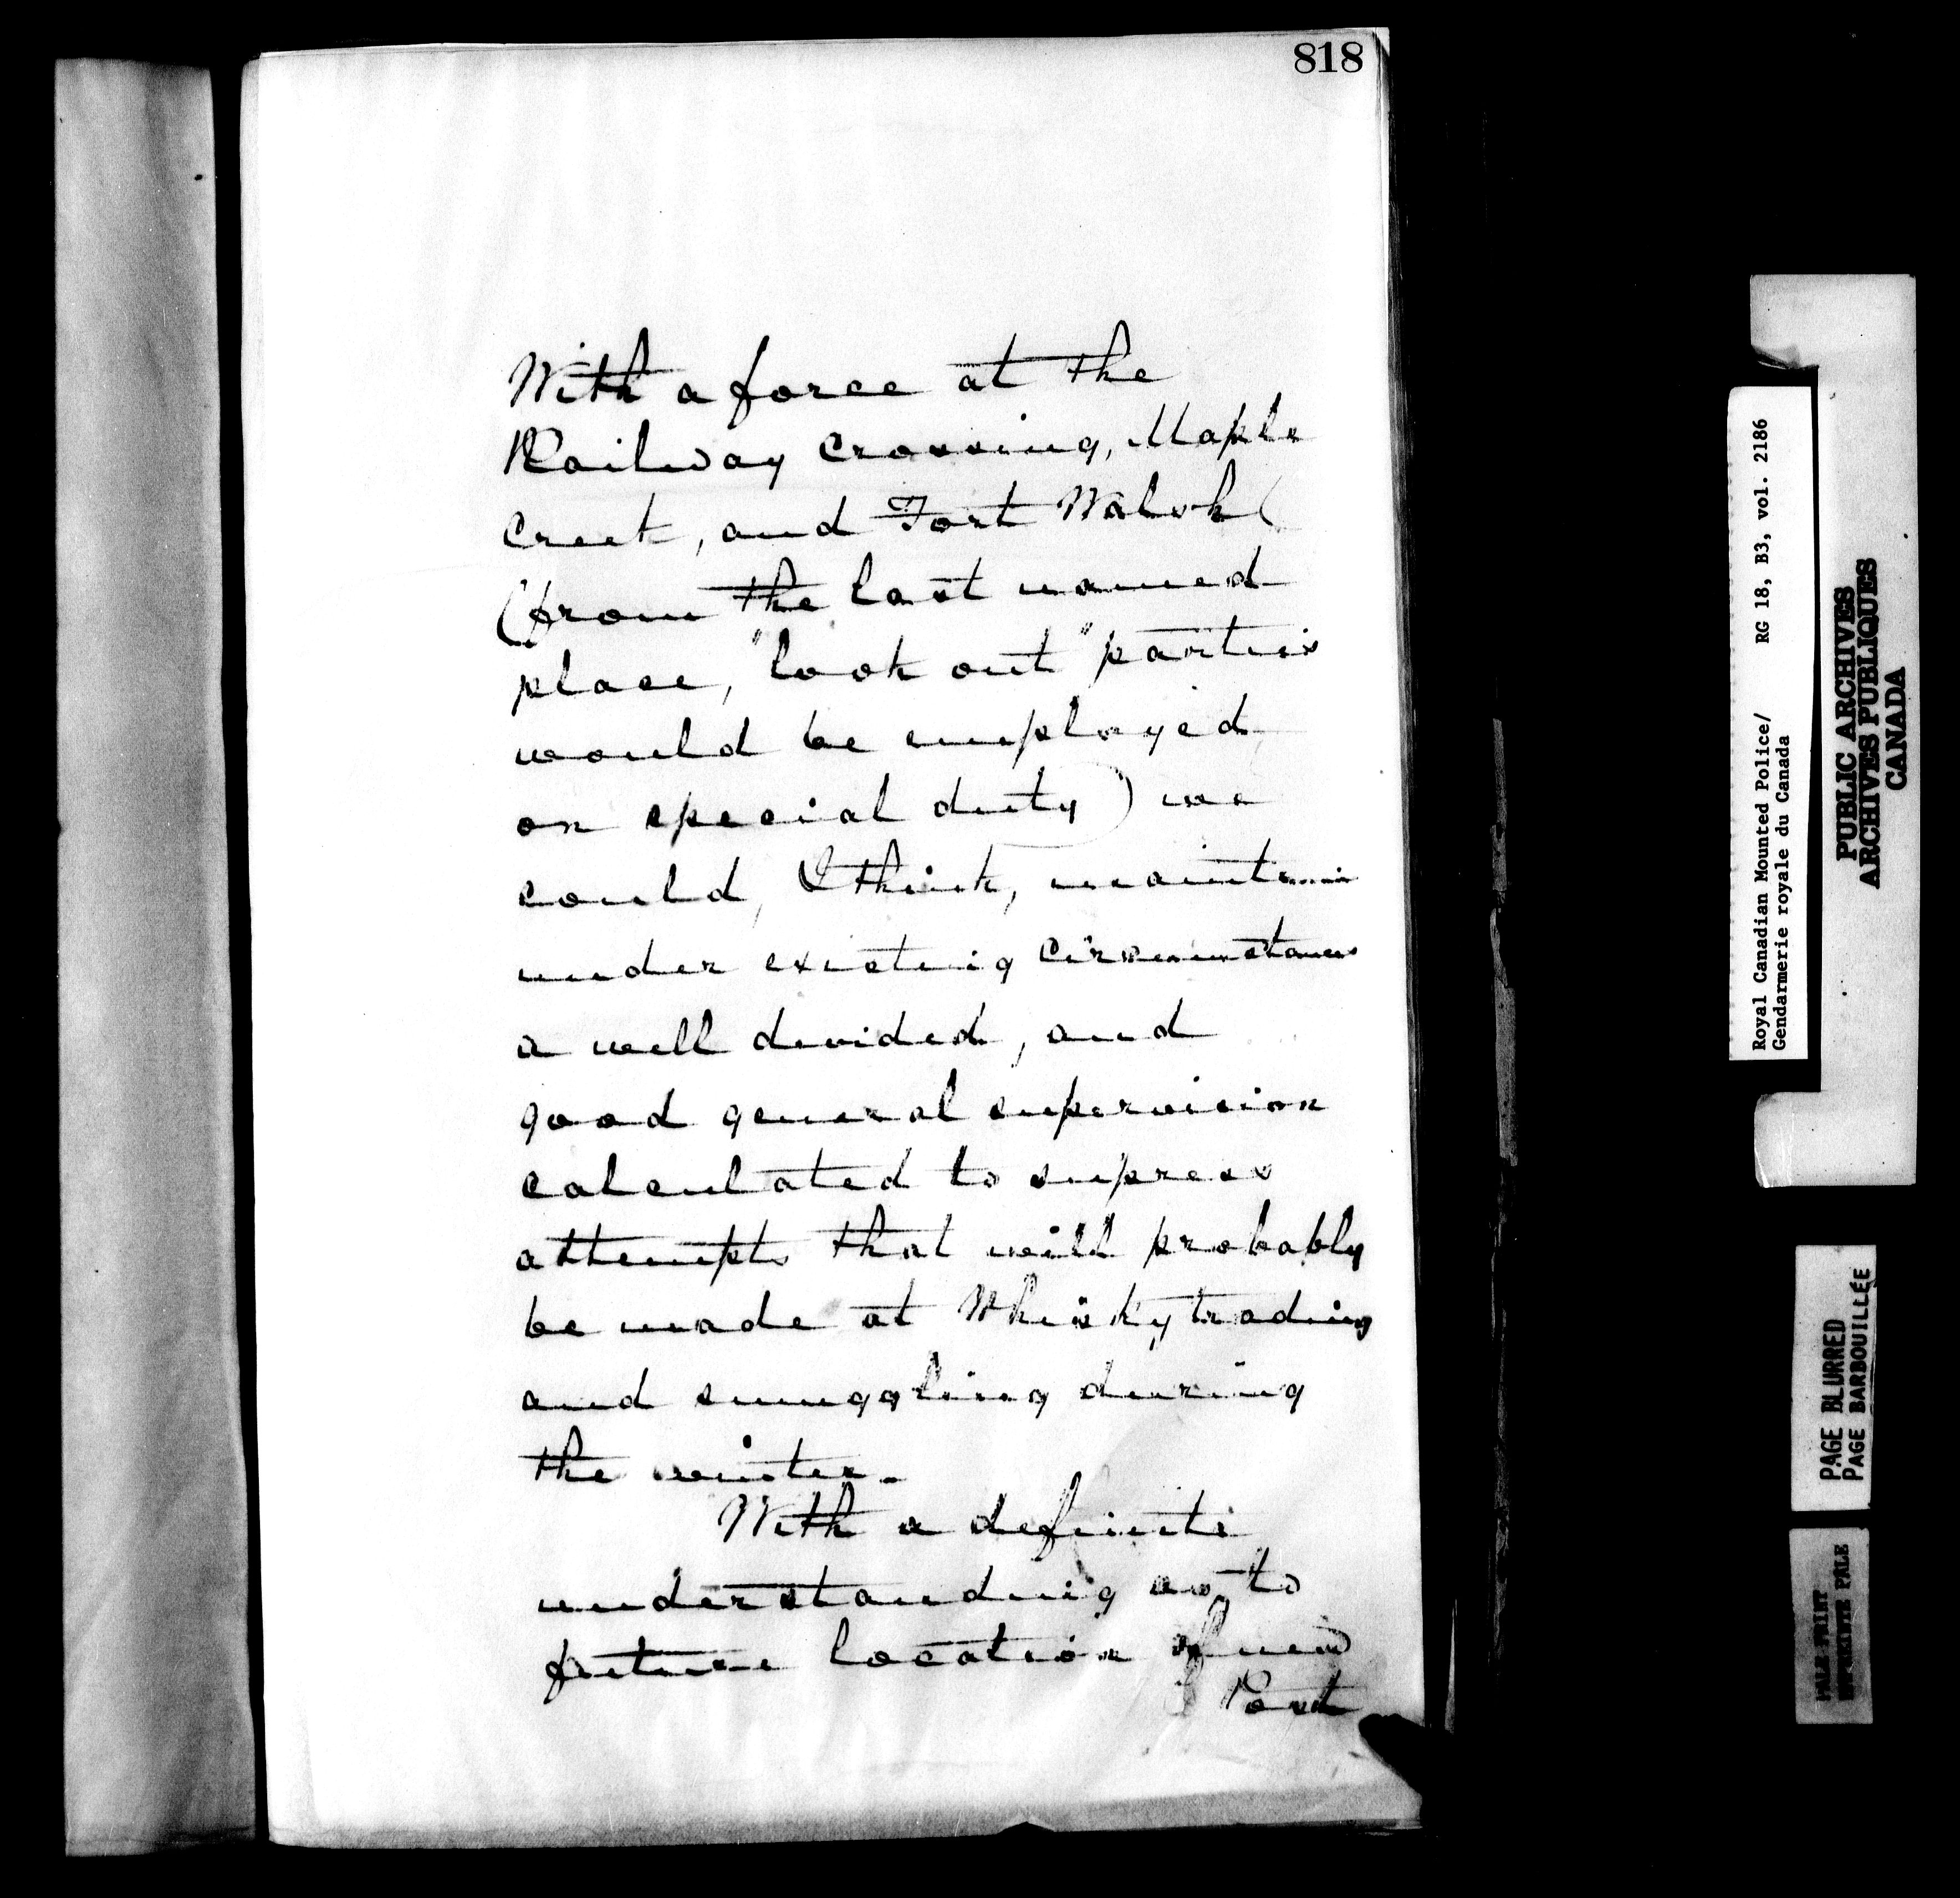 818
With a force at the
Railway Crossing, Maple
Creek, and Fort Walsh (
(from the last named
place, "look out" parties
would be employed,
on special duty) we
could, I think, maintain
under existing circumstances
a well divided, and
good general supervision
calculated to supress
attempts that will probably
be made at Whisky trading
and smuggling during
the winter.
With a definite
understanding as to
future location of new
Post
Royal Canadian Mounted Police/ RG 18, B3, vol. 2186
Gendarmerie royale du Canada
PUBLIC ARCHIVES
ARCHIVES PUBLIQUES
CANADA
PAGE BLURRED
PAGE BARBOUILLÉE
PALE PRINT
IMPRIMÉE PÂLE